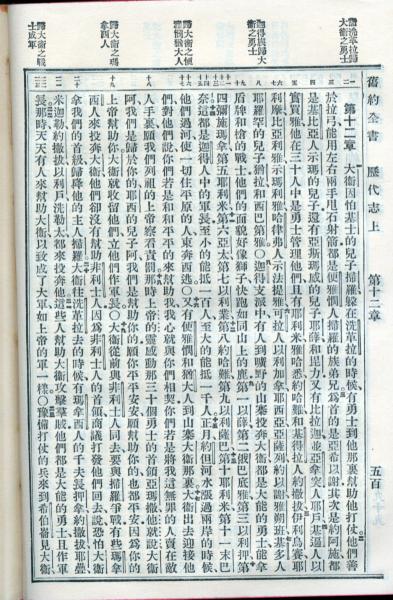 舊約全書 歷代志上 第十二章 五百
第十二章 大衛因怕基士的兒子掃羅躲在洗革拉的時候有勇士到他那裏幫助他打仗他們善
於拉弓能用左右兩手甩石射箭都是便雅憫人掃羅的族弟兄爲首的是亞希以謝其次是約阿施都
是基比亞人示瑪的兒子還有亞斯瑪威的兒子耶薛和毘力又有比拉迦並亞拿突人耶戶基遍人以
實買雅他在三十人中是勇士管理他們且有耶利米雅哈悉約哈難和基得拉人約撒拔伊利烏賽耶
利摩比亞利雅示瑪利雅哈律弗人示法提雅可拉人以利加拿耶西亞亞薩列約以謝雅朔班基多人
耶羅罕的兒子猶拉和西巴第雅○迦得支派中有人到曠野的山寨投奔大衛都是大能的勇士能拿
盾牌和槍的戰士他們的面貌好像獅子快跑如同山上的鹿第一以薛第二俄巴底雅第三以利押第
四彌施瑪拿第五耶利米第六亞太第七以利業第八約哈難第九以利薩巴第十耶利米第十一末巴
奈這都是迦得人中的軍長至小的能抵一百人至大的能抵一千人正月約但河水漲過兩岸的時候
他們過河使一切住平原的人東奔西逃○又有便雅憫和猶大人到山寨大衛那裏大衛出去迎接他
們對他們說你們若是和和平平的來幫助我我心就與你們相契你們若是將我這無罪的人賣在敵
人手裏願我們列祖的上帝察看責罰那時上帝的靈感動那三十個勇士的首領亞瑪撒他就說大衛
阿我們是歸於你的耶西的兒子阿我們是幫助你的願你平平安安願幫助你的也都平安因爲你的
上帝幫助你大衛就收留他們立他們作軍長○大衛從前與非利士人同去要與掃羅爭戰有些瑪拿
西人來投奔大衛他們卻沒有幫助非利士人因爲非利士人的首領商議打發他們回去說恐怕大衛
拿我們的首級歸降他的主人掃羅大衛往洗革拉去的時候有瑪拿西人的千夫長押拿約撒拔耶疊
米迦勒約撒拔以利戶洗勒太都來投奔他這些人幫助大衛攻擊羣賊他們都是大能的勇士且作軍
長那時天天有人來幫助大衛以致成了大軍如上帝的軍一樣○豫備打仗的兵來到希伯崙見大衛
大衛之勇士
歸大衛之瑪
拿西人
歸大衛之戰
士成軍